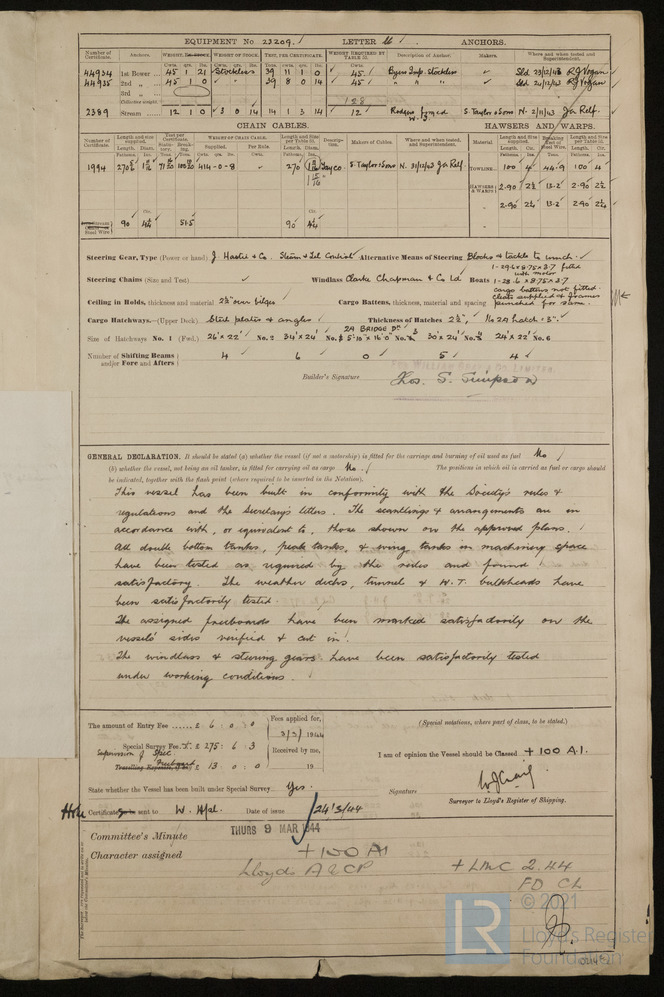 EQUIPMENT No 23209. LETTER U ANCHORS.
Number of Certificate. Anchors. WEIGHT. WEIGHT OF STOCK. TEST, PER CERTIFICATE. WEIGHT REQUIRED BY TABLE 31. Description of Anchor. Makers. Where and when tested and Superintendent.
44934 1st Bower 45 1 21 Stockless 39 11 1 0 45 Byers Imp. stockless Sld 23/12/43 R.J. Vogan
44935 2nd 45 1 0 39 8 0 14 45 Sld 20/12/43 R.J. Vogan
3rd
Collective weight 128
2389 Stream 12 1 0 3 0 14 14 1 3 14 12 Rodgers forged S. Taylor & Sons N. 2/11/43 Ja Relf.
CHAIN CABLES. HAWSERS AND WARPS.
Number of Certificate. Length and size supplied. Test per Certificate WEIGHT OF CHAIN CABLE. Length and Size per Table 31. Description. Makers of Cables. Where and when tested, and Superintendent. Material Length and Size supplied. Breaking Test of Steel Wire. Length and Size per Table 31.
1994 270 414-0-8 270 Tayco S. Taylor & Sons N. 31/12/43 Ja Relf. TOWLINE 100 4 44.9 100 4
HAWSERS & WARPS 2-90 2½ 13.2 2-90 2½
2-90 2½ 13.2 2-90 2½
Steel Wire 90 4¼ 51.5 90 4¼
Steering Gear, Type (Power or hand) J. Hastie & Co. Steam & Tel Control Alternative Means of Steering Blocks & tackle to winch.
Steering Chains (Size and Test) Windlass Clarke Chapman & Co Ld Boats 1-29.6 x 8.75 x 3.7 fitted with motor
1-28.6 x 8.75 x 3.7
Ceiling in Holds, thickness and material 2½" over bilges Cargo Battens, thickness, material and spacing cargo battens not fitted. cleats supplied & frames punched for same.
Cargo Hatchways.—(Upper Deck) Steel plates & angles Thickness of Hatches 2½", No 2A hatch - 3".
2A BRIDGE DK
Size of Hatchways No. 1 (Fwd.) 26' x 22' No. 2 34' x 24' No. 3 5'-10" x 16'0" No. 30' x 24' No. 24' x 22' No. 6
Number of Shifting Beams and/or Fore and Afters 4 6 0 5 4
Builder's Signature Thos. S. Simpson
GENERAL DECLARATION. It should be stated (a) whether the vessel (if not a motorship) is fitted for the carriage and burning of oil used as fuel No
(b) whether the vessel, not being an oil tanker, is fitted for carrying oil as cargo No. The positions in which oil is carried as fuel or cargo should
be indicated, together with the flash point (where required to be inserted in the Notation).
This vessel has been built in conformity with the Society's rules &
regulations and the Secretary's letters. The scantlings & arrangements are in
accordance with, or equivalent to, those shown on the approved plans.
All double bottom tanks, peak tanks, & wing tanks in machinery space
have been tested as required by the rules and found
satisfactory. The weather decks, tunnel & W.T. bulkheads have
been satisfactorily tested
The assigned freeboards have been marked satisfactorily on the
vessels' sides verified & cut in.
The windlass & steering gears have been satisfactorily tested
under working conditions.
The amount of Entry Fee £ 6 : 0 : 0 Fees applied for, (Special notations, where part of class, to be stated.)
2/3/1944
Special Survey Fee £ 275 : 6 : 3 Received by me, I am of opinion the Vessel should be Classed +100 A1.
Supervision of Spec
Freeboard
Travelling Expenses £ 13 : 0 : 0 19
State whether the Vessel has been built under Special Survey Yes. Signature
Surveyor to Lloyd's Register of Shipping.
Certificate sent to W. Hpl. Date of issue 24/3/44
Committee's Minute THURS 9 MAR 1944
Character assigned +100 A1
Lloyds A & CP + LMC 2.44
FD CL
© 2021
LR Lloyd's Register Foundation